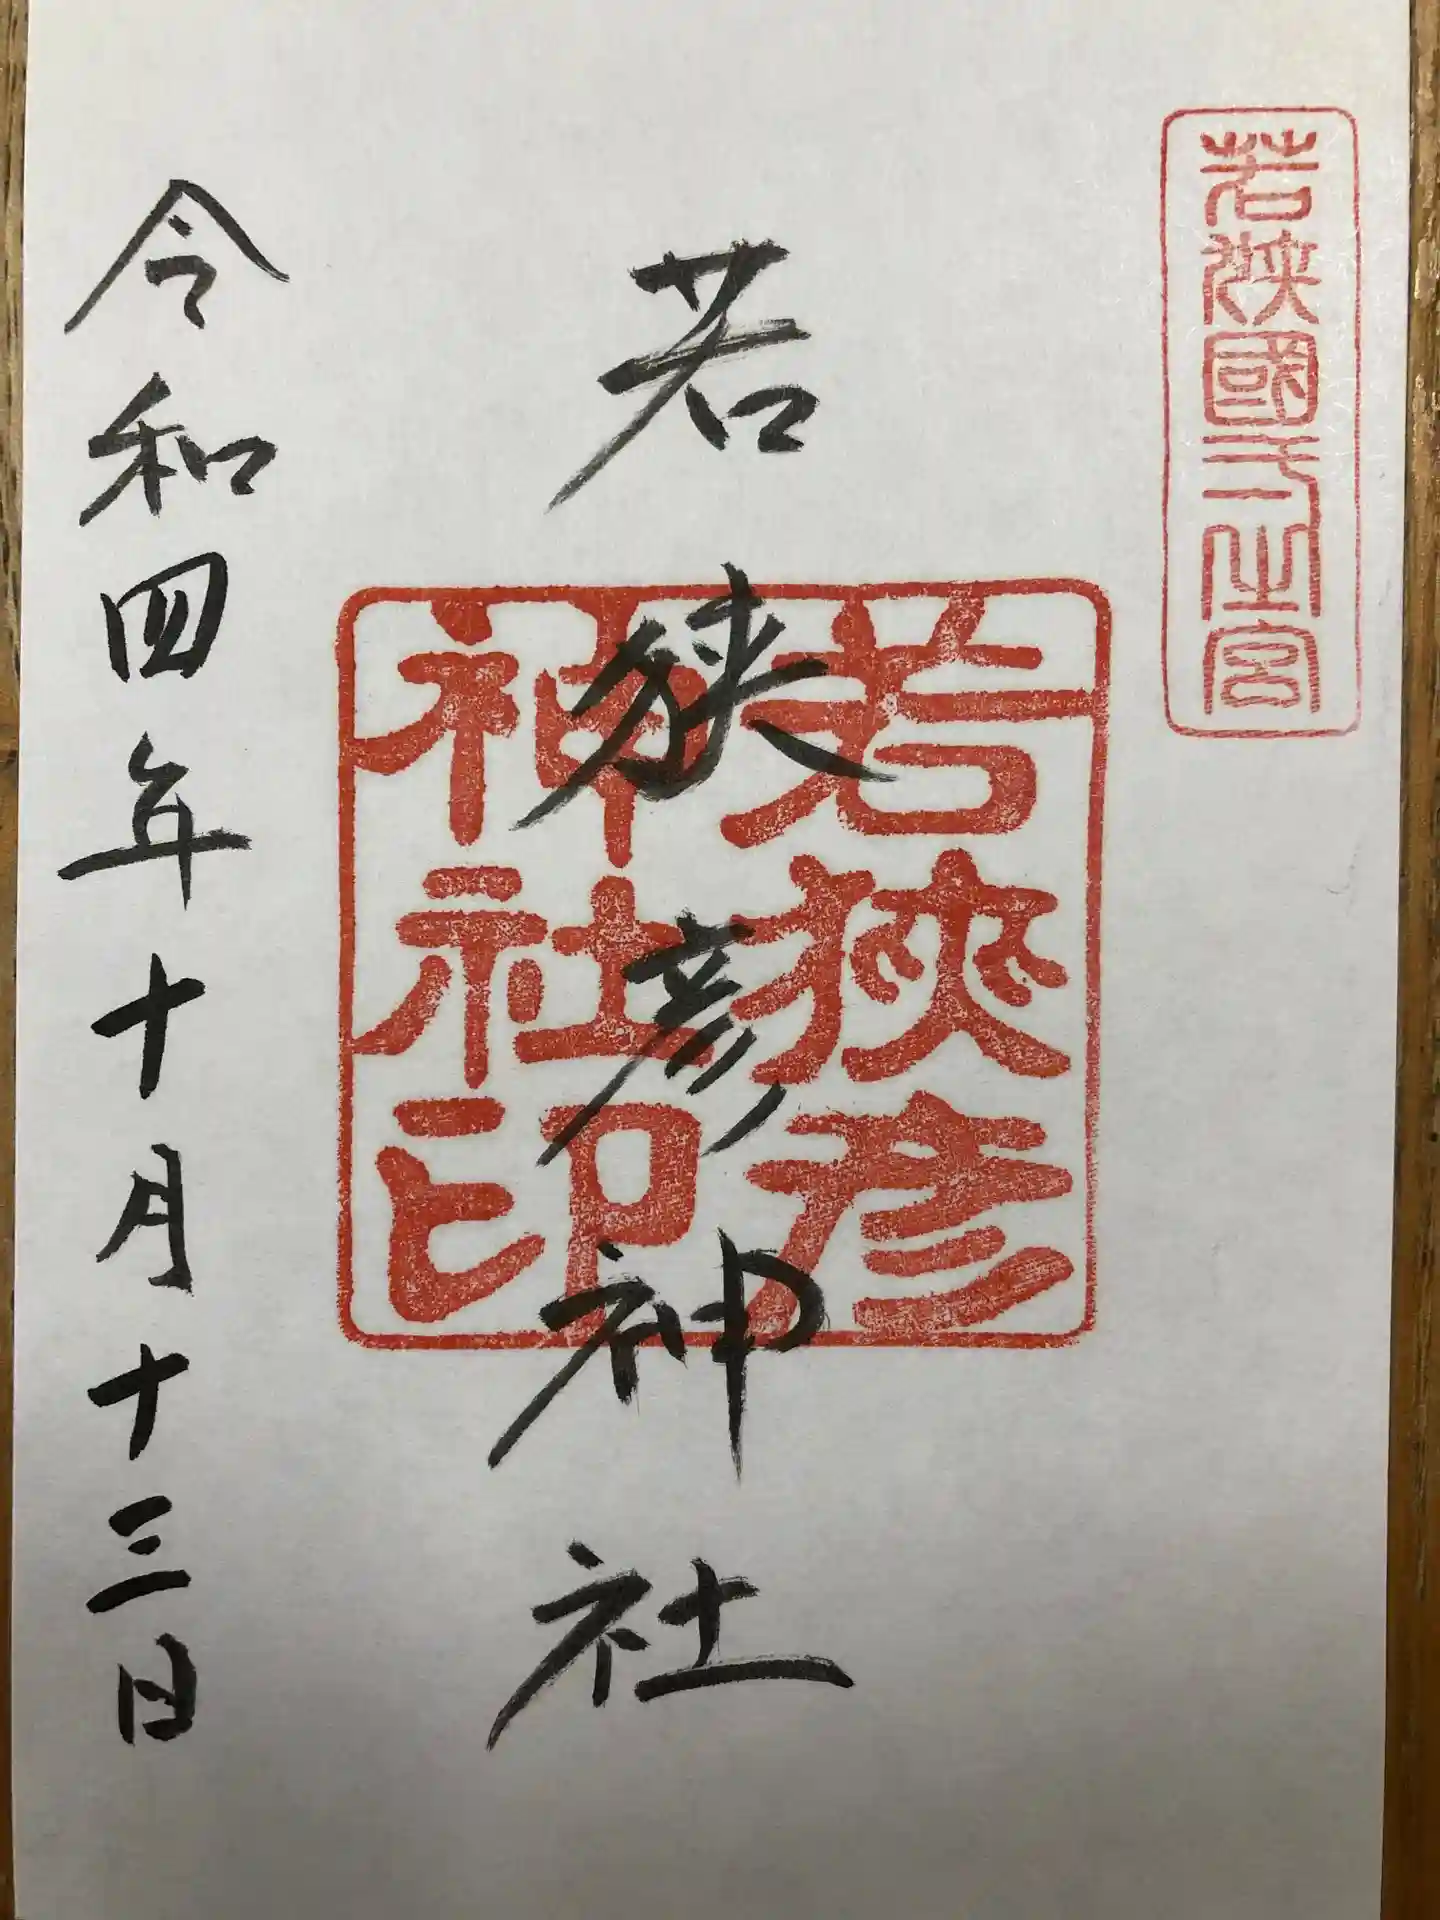 若狭國一之宮
若狹彦
神社印
若狭彦神社
令和四年十月十三日